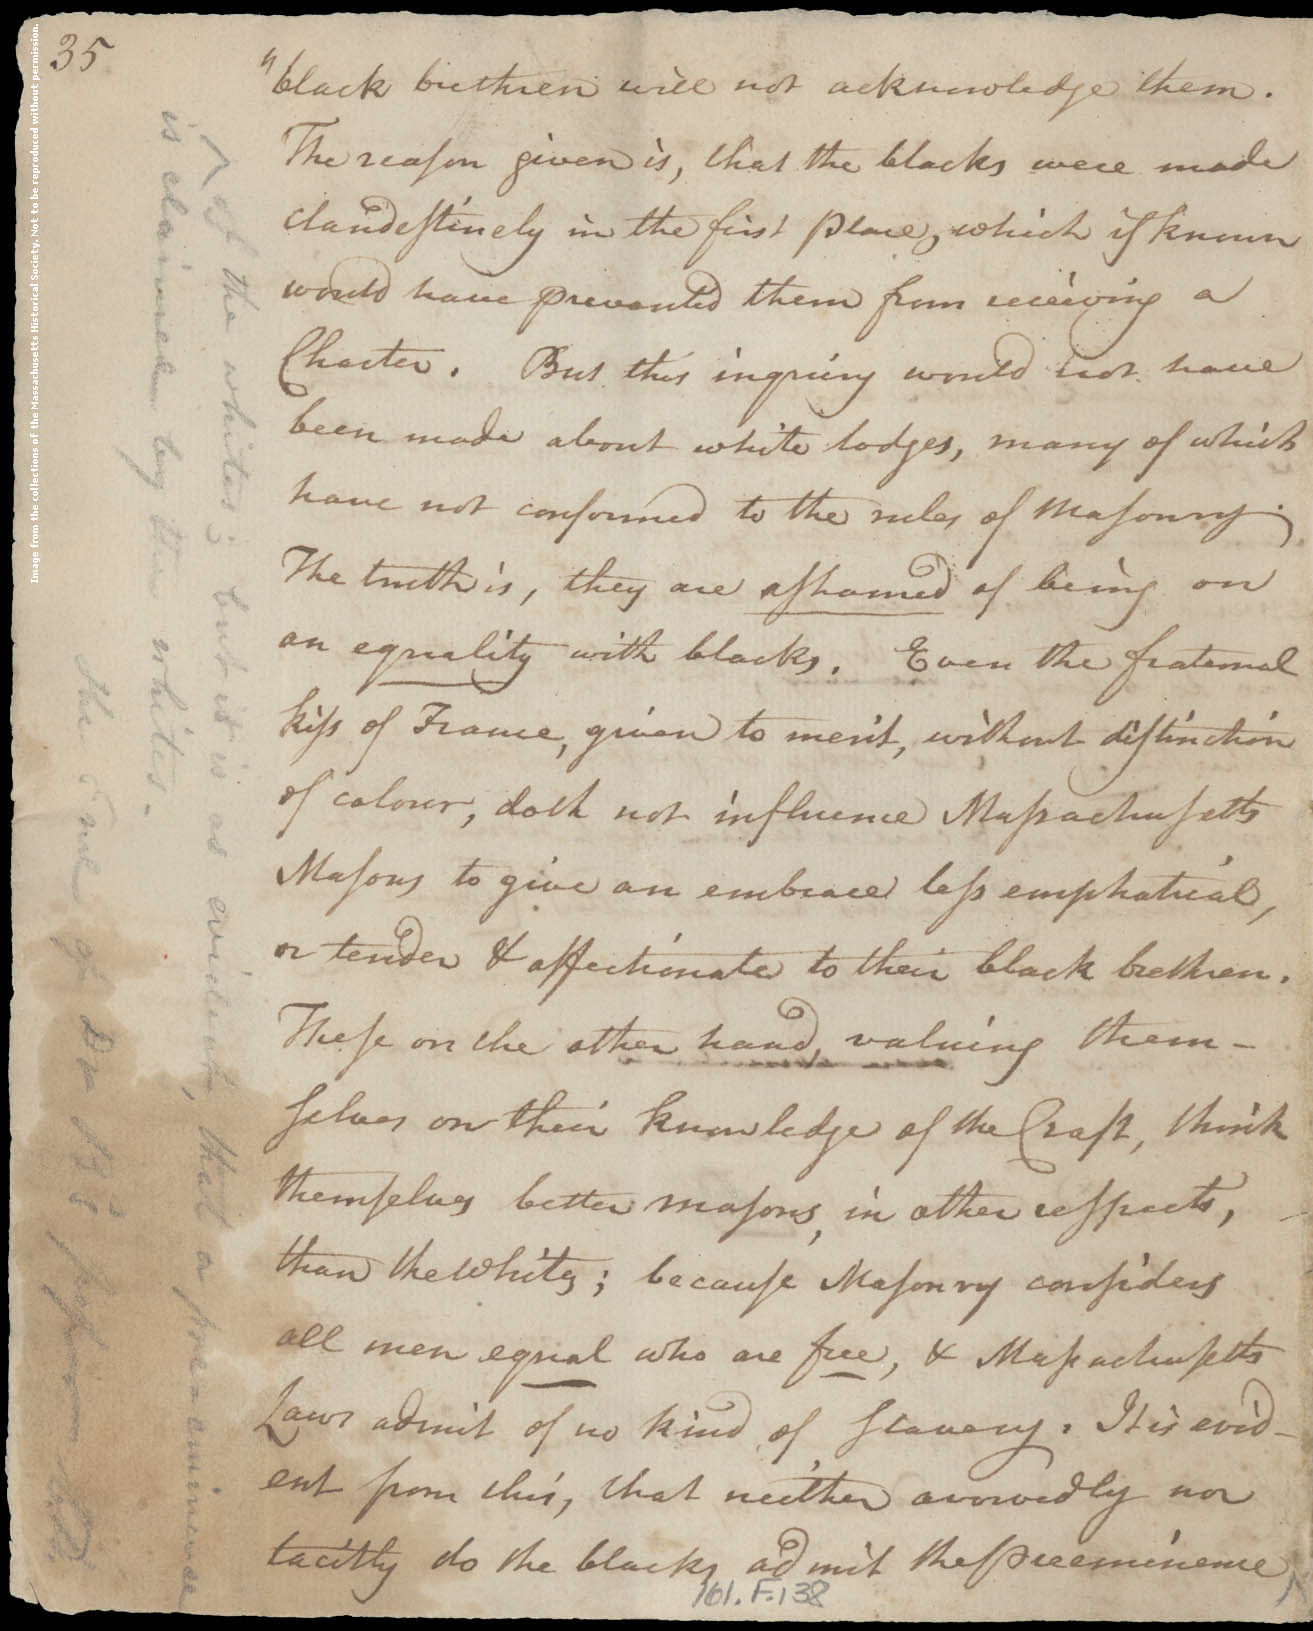 35
"black brethren will not acknowledge them.
The reason given is, that the blacks were made
clandestinely in the first place, which if known
would have prevented them from receiving a
Charter. But this inquiry would not have
been made about white lodges, many of which
have not conformed to the rules of Masonry.
The truth is, they are ashamed of being on
an equality with blacks. Even the fraternal
kiss of France, given to merit, without distinction
of colour, doth not influence Massachusetts
Masons to give an embrace less emphatical,
or tender & affectionate to their black brethren.
These on the other hand, valuing them-
selves on their knowledge of the Craft, think
themselves better masons, in other respects,
than the whites; because Masonry considers
all men equal who are free, & Massachusetts
Laws admit of no kind of slavery. It is evid-
ent from this, that neither avowedly nor
tacitly do the blacks admit the preeminence,
of the whites; but it is as evident, that a preeminence
is claimed by the whites.
101.F.138
Image from the collections of the Massachusetts Historical Society. Not to be reproduced without permission.